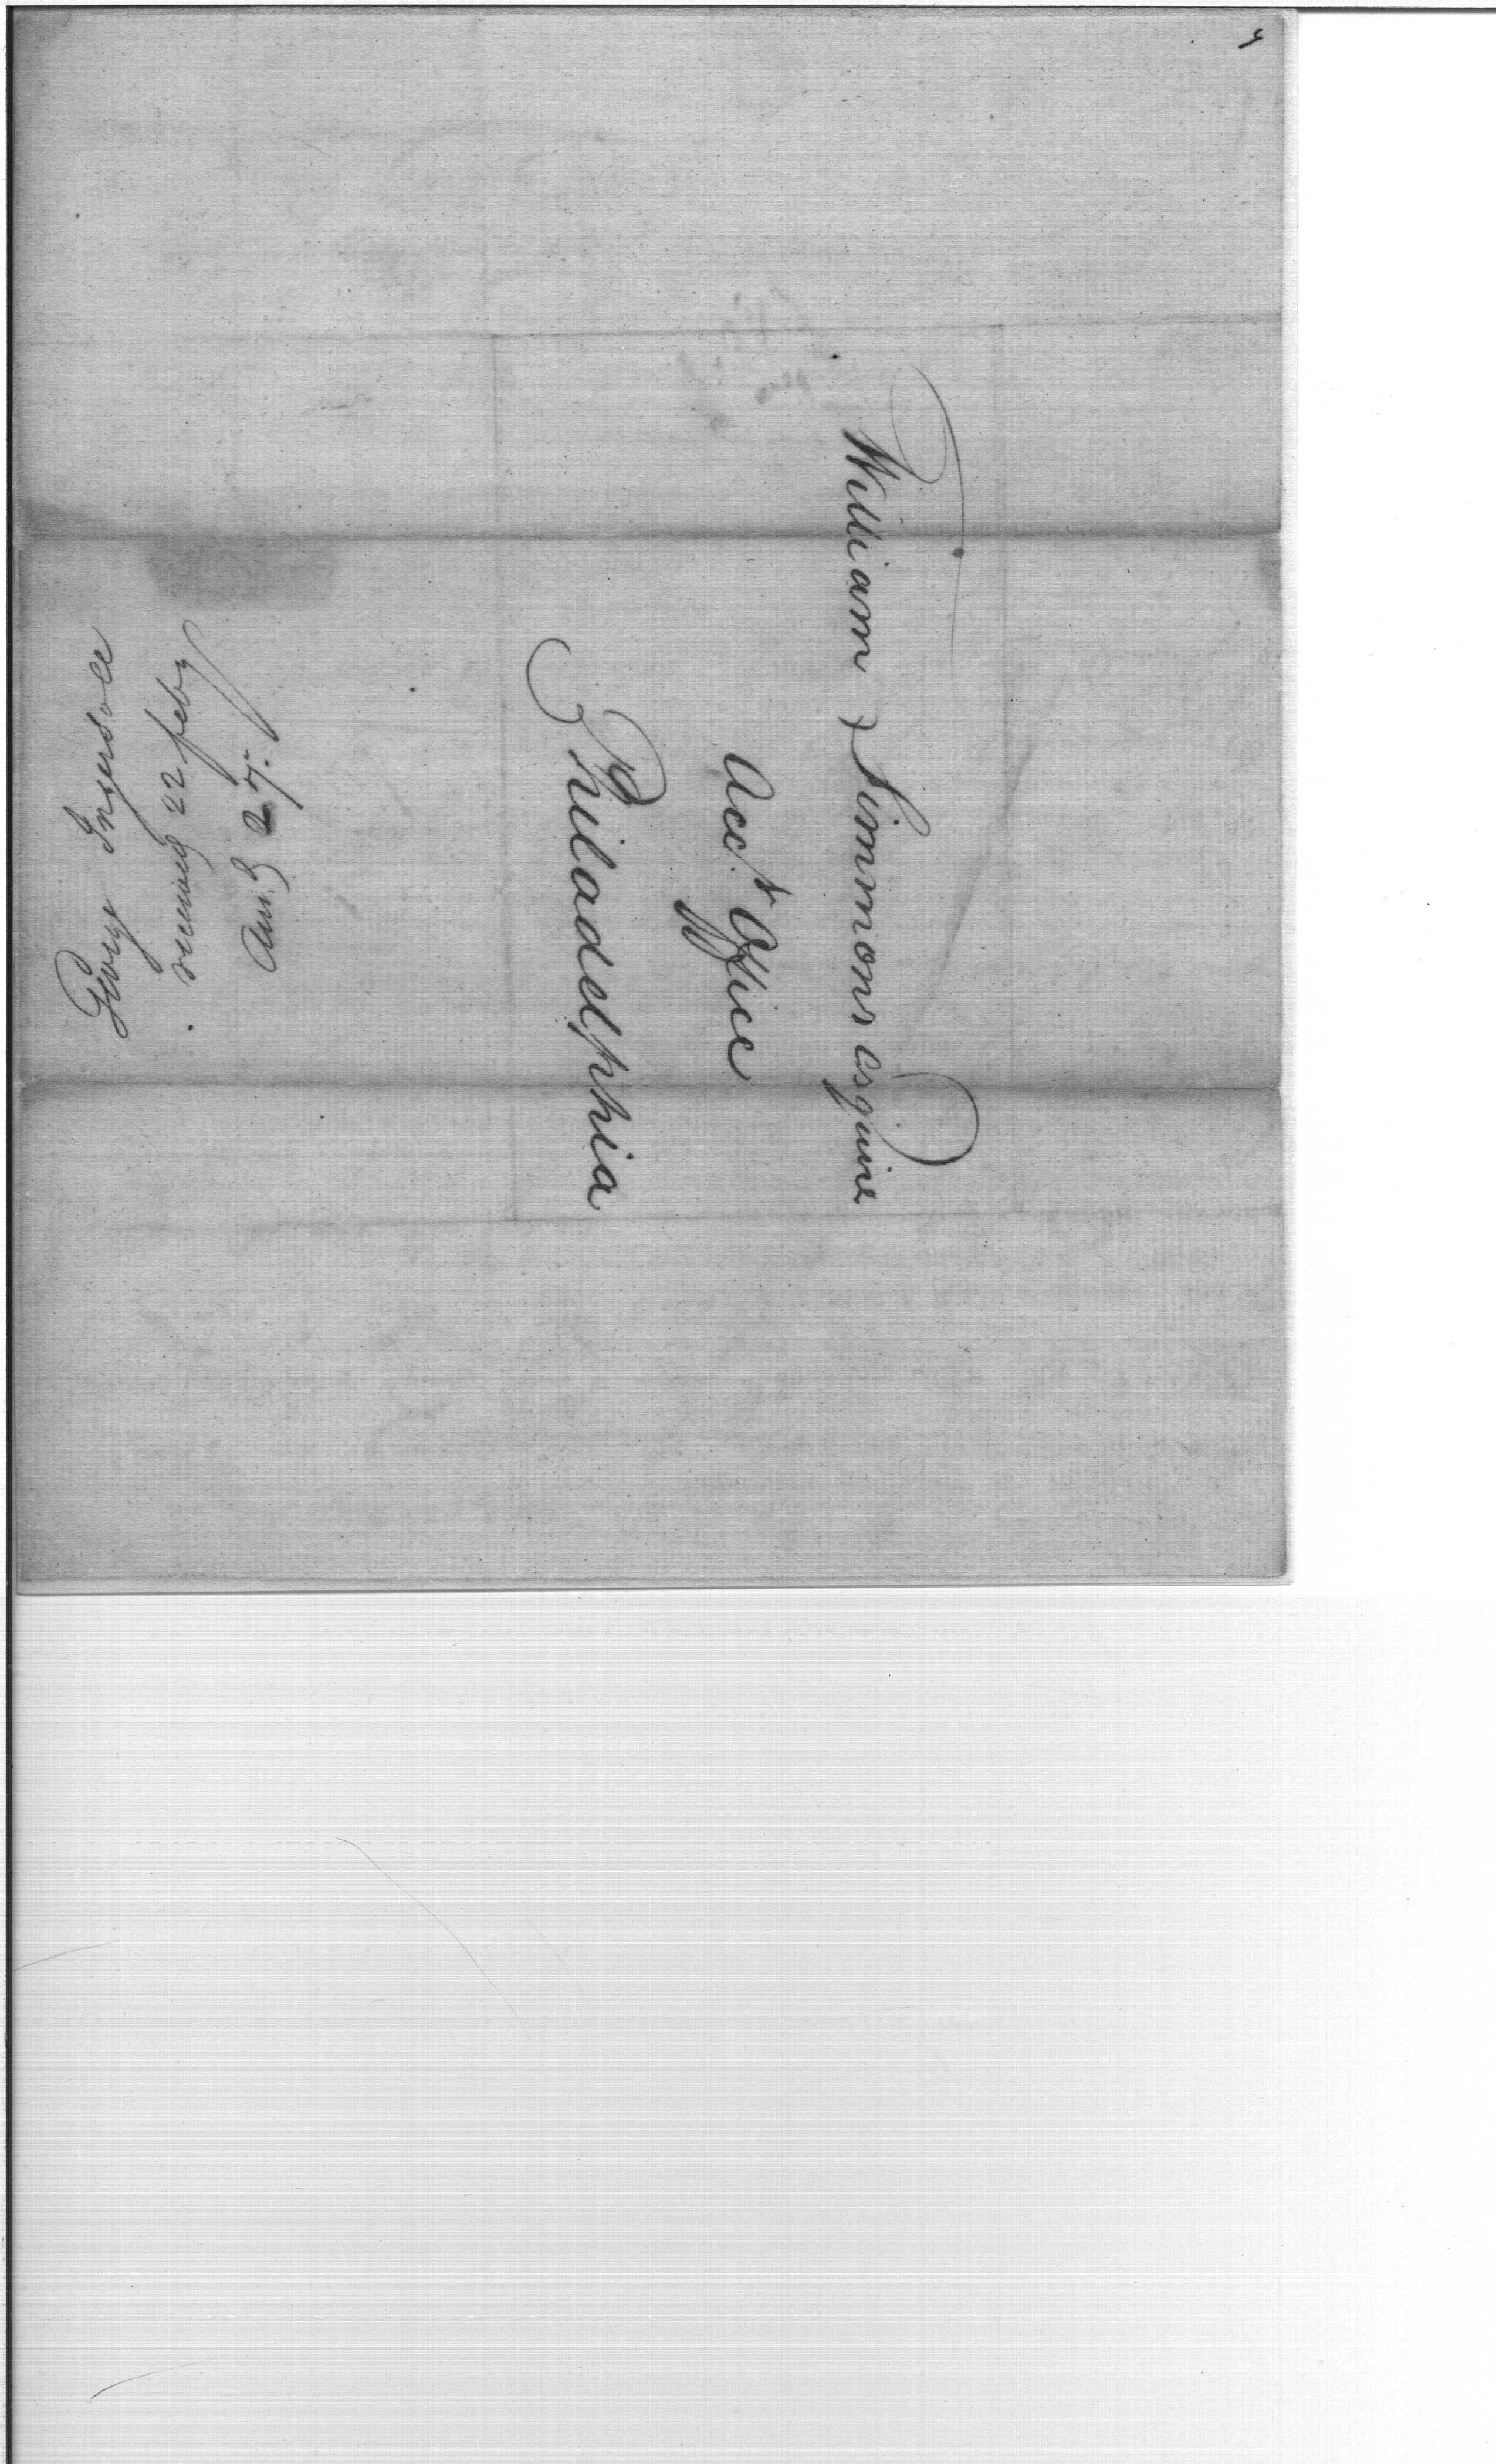 William Simmons esquire
Acct. Office
Philadelphia
George Ingersoll
received 22 feby
Ansd 27.